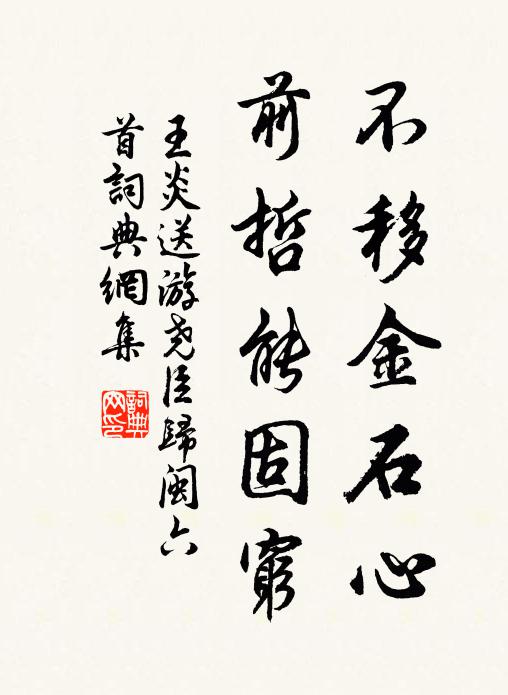 不移金石心
前哲能固窮
王炎送游堯臣歸閩六
首詞典網集
詞典
网印